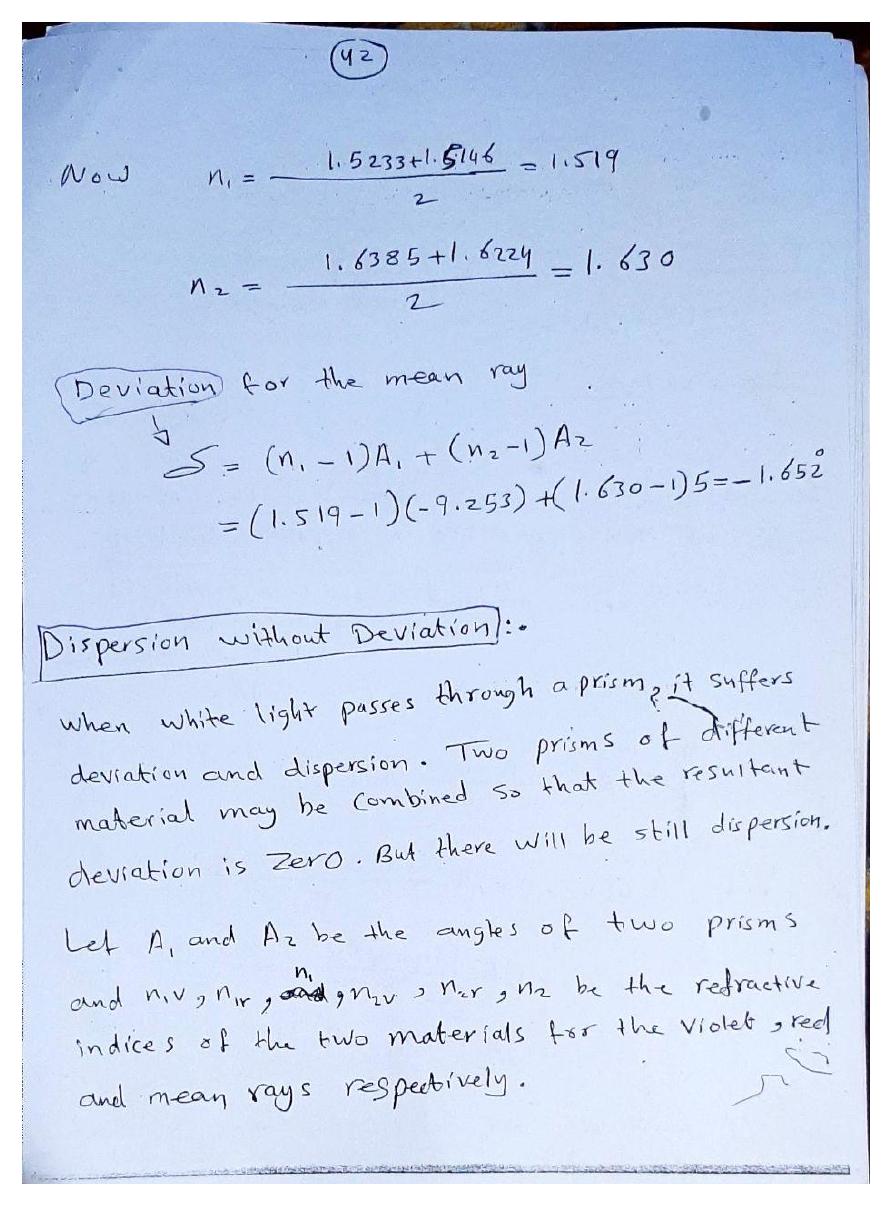 42
Now n₁ = (1.5233+1.5146)/2 = 1.519
n₂ = (1.6385+1.6224)/2 = 1.630
Deviation for the mean ray
δ = (n₁-1)A₁ + (n₂-1)A₂
= (1.519-1)(-9.253)+(1.630-1)5=-1.652°
Dispersion without Deviation:-
when white light passes through a prism, it suffers
deviation and dispersion. Two prisms of different
material may be combined so that the resultant
deviation is zero. But there will be still dispersion.
Let A₁ and A₂ be the angles of two prisms
and n₁v, n₁r, n₁, n₂v, n₂r, n₂ be the refractive
indices of the two materials for the violet, red
and mean rays respectively.